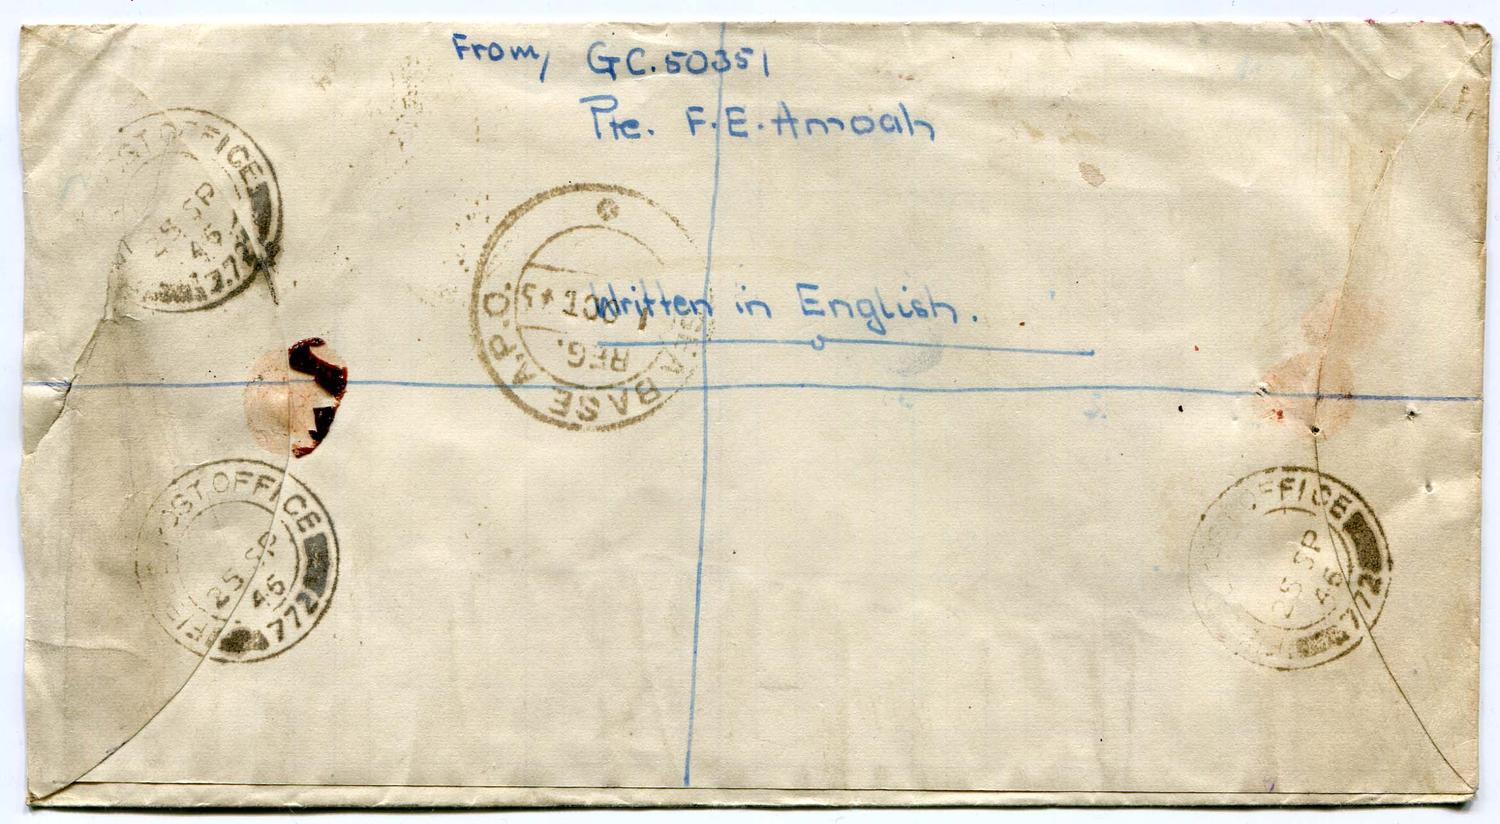 From, GC.50351
Pte. F.E.Amoah
POST OFFICE
25 SP
45
772
BASE A.P.O.
REG.
1 OCT 45
Written in English.
POST OFFICE
25 SP
45
772
POST OFFICE
25 SP
45
772